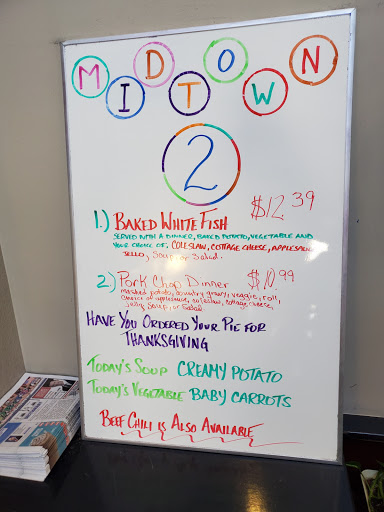 MIDTOWN
2
1.) BAKED WHITE FISH $12.39
SERVED WITH A DINNER, BAKED POTATO, VEGETABLE AND
YOUR CHOICE OF: COLESLAW, COTTAGE CHEESE, APPLESAUCE
JELLO, Soup or Salad.
2.) Pork Chop Dinner $10.99
mashed potato, country gravy, veggie, roll,
choice of applesauce, coleslaw, cottage cheese,
jello, Soup, or Salad.
HAVE YOU ORDERED YOUR PIE FOR
THANKSGIVING
TODAY'S SOUP CREAMY POTATO
TODAY'S VEGETABLE BABY CARROTS
BEEF CHILI IS ALSO AVAILABLE